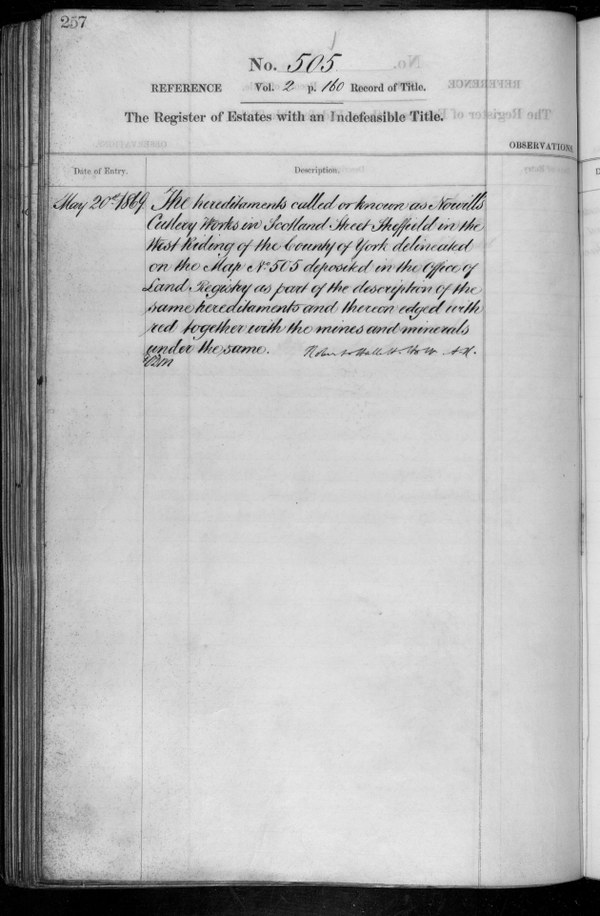 257
No. 505
REFERENCE Vol. 2 p. 160 Record of Title.
The Register of Estates with an Indefeasible Title.
OBSERVATIONS.
Date of Entry. Description.
May 20th 1869 The hereditaments called or known as Nowills
Cutlery Works in Scotland Street Sheffield in the
West Riding of the County of York delineated
on the Map No 505 deposited in the Office of
Land Registry as part of the description of the
same hereditaments and thereon edged with
red together with the mines and minerals
under the same. Robert Hallett Holt A.R.